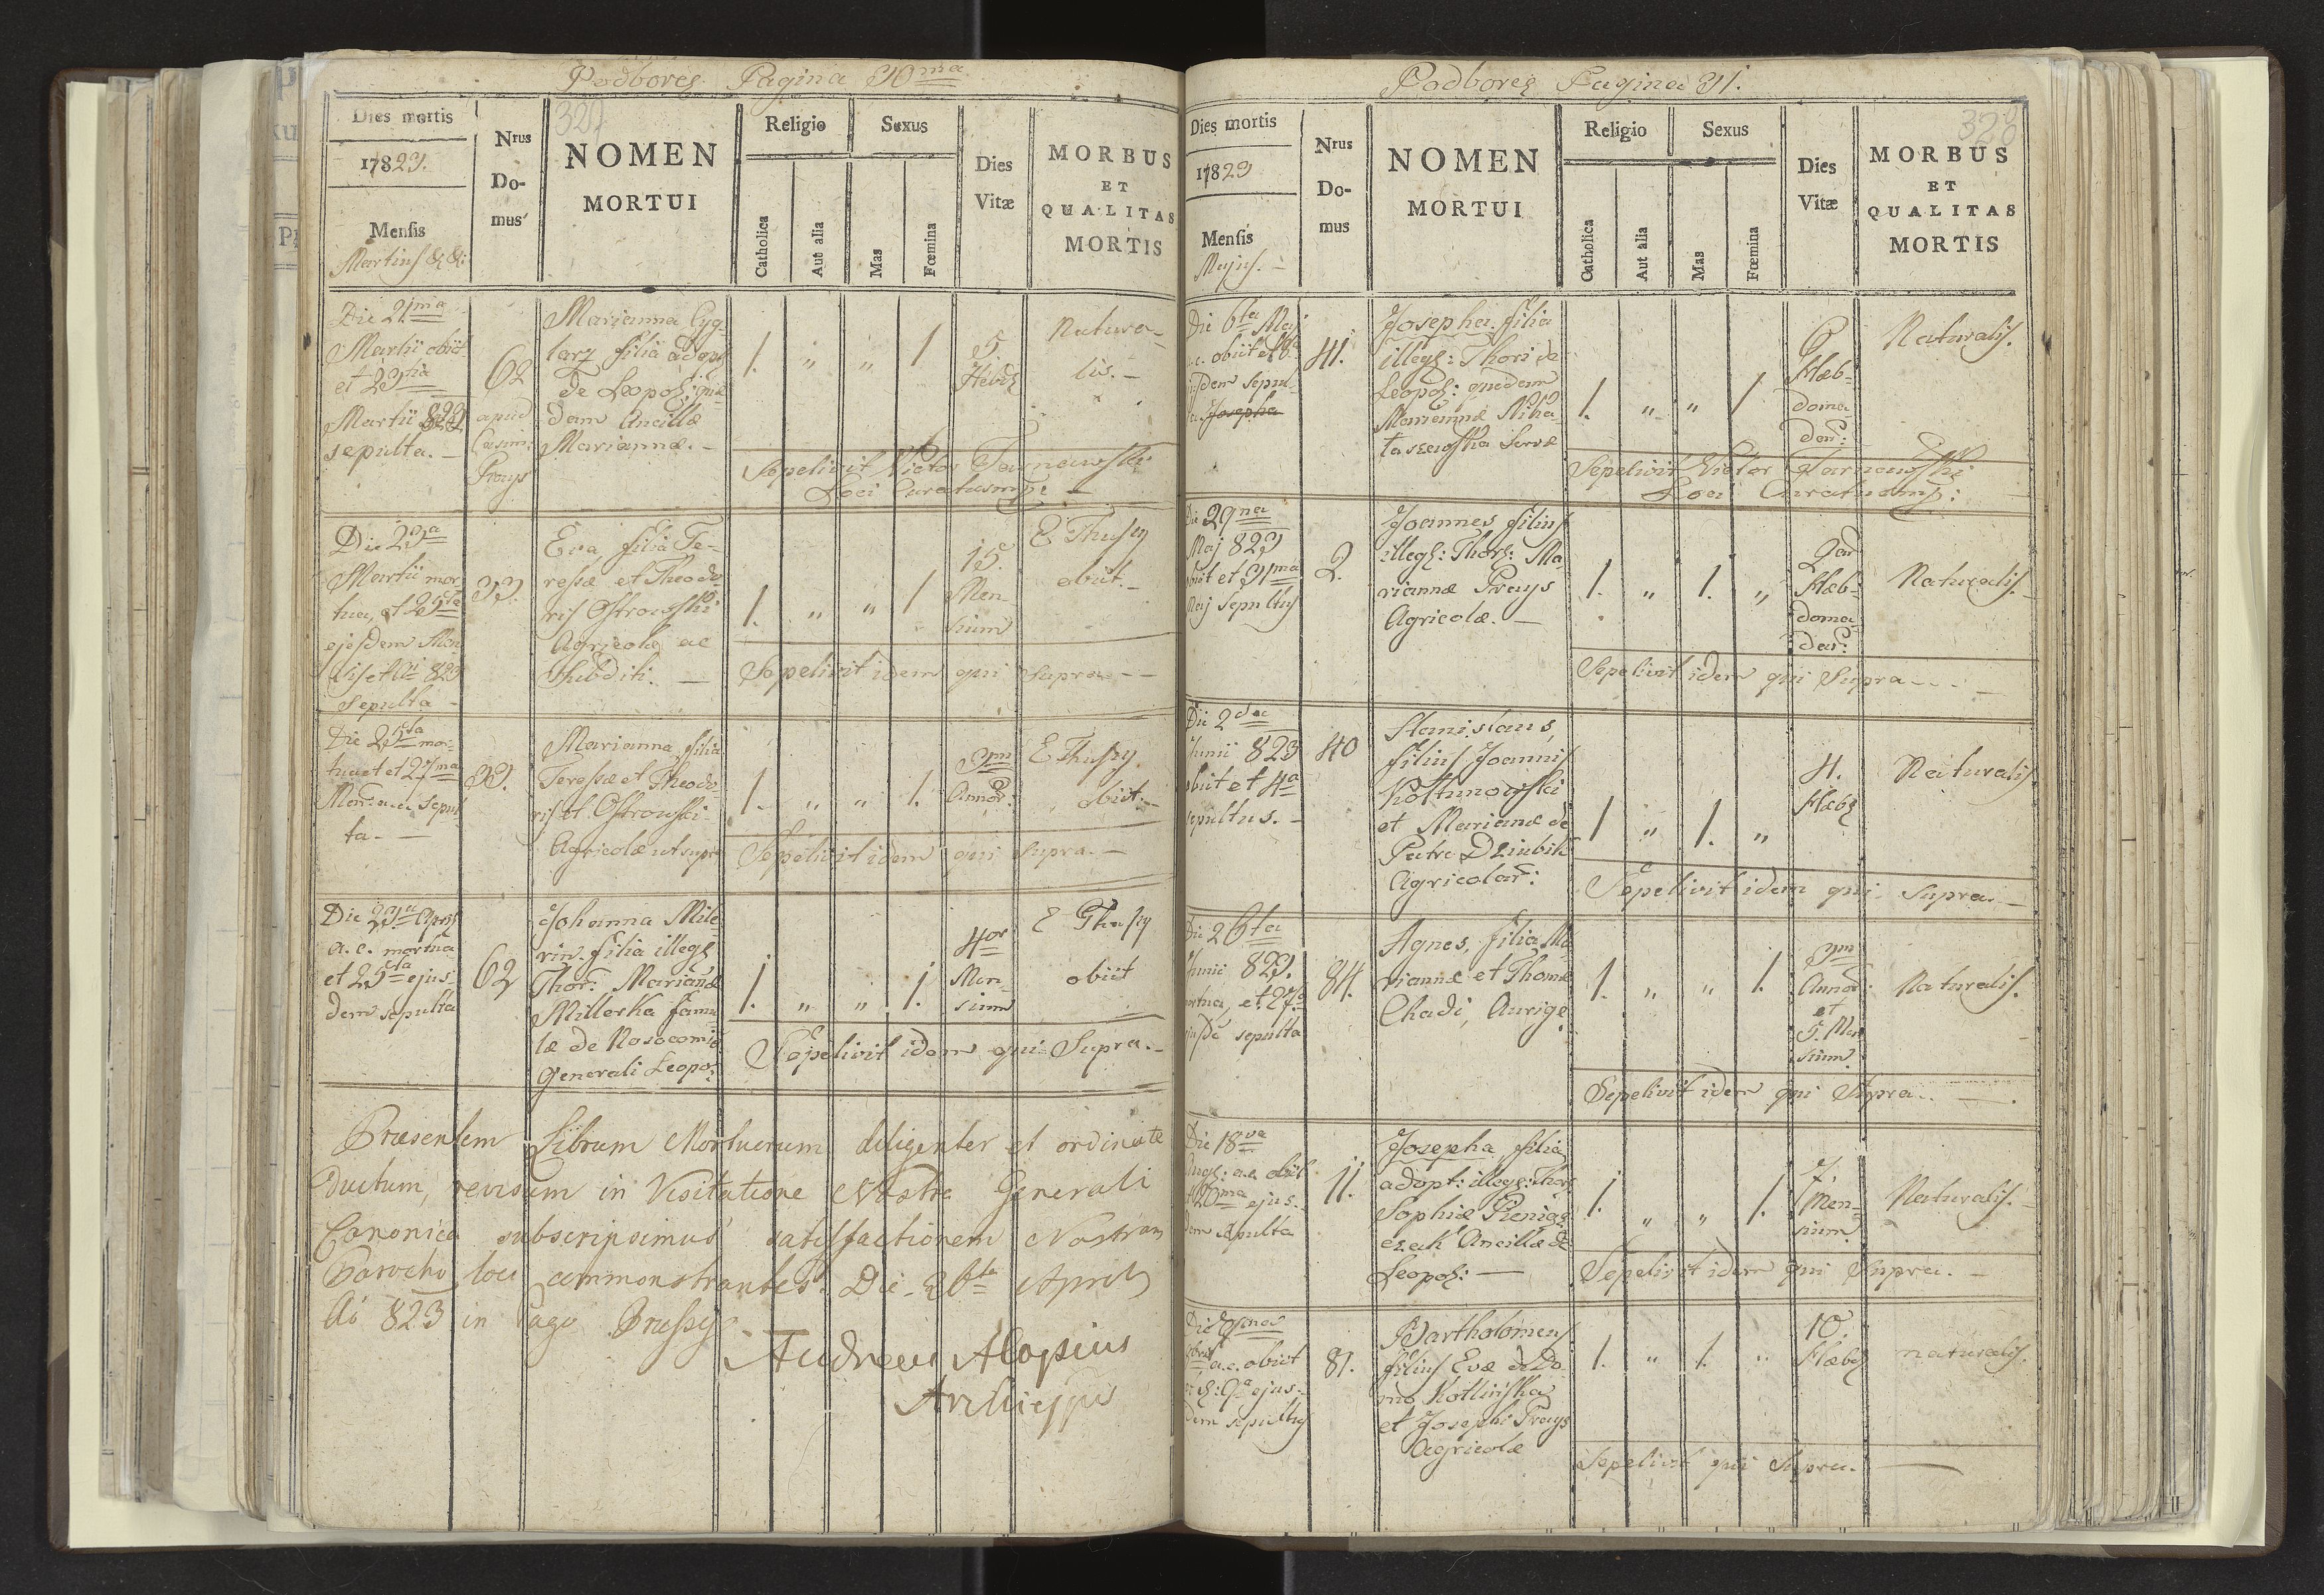 Podborcz Pagina 30ma
327
Dies mortis
1823.
Mensis
Martius &c:
Nrus
Do-
mus
NOMEN
MORTUI
Religio
Catholica
Aut alia
Sexus
Mas
Fœmina
Dies
Vitæ
MORBUS
ET
QUALITAS
MORTIS
Die 21ma
Martii obiit
et 23tia
Martii 823
sepulta. –
62
apud
Casim:
Prays
Marianna Cyg-
larz filia adopt
de Leopol: quæ
dam Ancillæ
Mariannæ. –
1. " " 1
5
Hebd
Natura-
lis. –
Sepelivit Victor Tarnawski
Loci Curatus mp –
Die 23a
Martii mor
tua, et 25ta
ejusdem Men
sis et Ai 823
Sepulta –
33.
Eva filia Te-
ressæ et Theodo-
ris Ostrowski
Agricolæ ac
Subditi. –
1. " " 1
15.
Men-
sium
E Thussy
obiit. –
Sepelivit idem qui Supra – –
Die 25ta mor-
tua et 27ma
Mar: a.c. sepul
ta. –
33.
Marianna filia
Teressæ et Theodo
ris Ostrowski
Agricolæ ut supra
1. " " 1.
3m
Annor:
E Thussy
obiit. –
Sepelivit idem qui Supra. –
Die 23a Apr
a. c. mortua
et 25ta ejus-
dem sepulta
62
Johanna Mile
rin. filia illeg
Thor: Mariannæ
Millerka famu
læ de Nosocomio
Generali Leopol:
1. " " 1.
4or
Men-
sium
E Thussy
obiit
Sepelivit idem qui Supra. –
Præsentem Librum Mortuorum diligenter et ordinate
Ductum, revisum in Visitatione Nostra Generali
Canonica subscripsimus satisfactionem Nostram
Parocho loci commonstrantes. Die 26ta Aprilis
Ao 823 in Pago Prussy
Andreas Aloysius
Archieppus
Podborcz Pagina 31.
328
Dies mortis
1823
Mensis
Majus. –
Nrus
Do-
mus
NOMEN
MORTUI
Religio
Catholica
Aut alia
Sexus
Mas
Fœmina
Dies
Vitæ
MORBUS
ET
QUALITAS
MORTIS
Die 6ta Maj
a.c. obiit et 8va
ejusdem sepul-
ta Josepha
41.
Josepha filia
illeg: Thori de
Leopol: quædam
Mariannæ
Servæ
1. " " 1
6
Hæb-
doma-
dar:
Naturalis.
Sepelivit Victor Tarnawski
Loci Curatus mp:
Die 29na
Maj 823
obiit et 31ma
Maj Sepultus
2.
Joannes filius
illeg: Thor: Ma
riannæ Prays
Agricolæ. –
1. " 1. "
2ar
Hæb-
doma-
dar:
Naturalis.
Sepelivit idem qui Supra – –
Die 2da
Junii 823
obiit et 4a
sepultus. –
40
Stanislaus,
filius Joannis
Koltunowski
et Mariannæ de
Patre Dziubik
Agricolar:
1 " 1. "
4.
Hæbd
Naturalis
Sepelivit idem qui Supra. –
Die 26ta
Junii 823.
mortua, et 27a
ejusde sepulta
84.
Agnes, filia Ma
riannæ et Thomæ
Chadi, Aurigæ
1. " " 1.
3m
Annor:
et
5. Men
sium
Naturalis.
Sepelivit idem qui Supra. –
Die 18va
Aug: a.c. obiit
et 20ma ejus-
dem sepulta
11.
Josepha filia
adopt: illeg: Thor:
Sophiæ Pienią
czak Ancillæ de
Leopol: –
1. " " 1.
7.
Men-
sium
Naturalis. –
Sepelivit idem qui Supra. –
a.c. obiit
et 9a ejus-
dem sepultus
81.
Bartholomeus
filius Evæ de Do
mo Kotlinska
et Josephi Prays
Agricolæ
1. " 1. "
10.
Hæbd
naturalis.
Sepelivit qui Supra. –